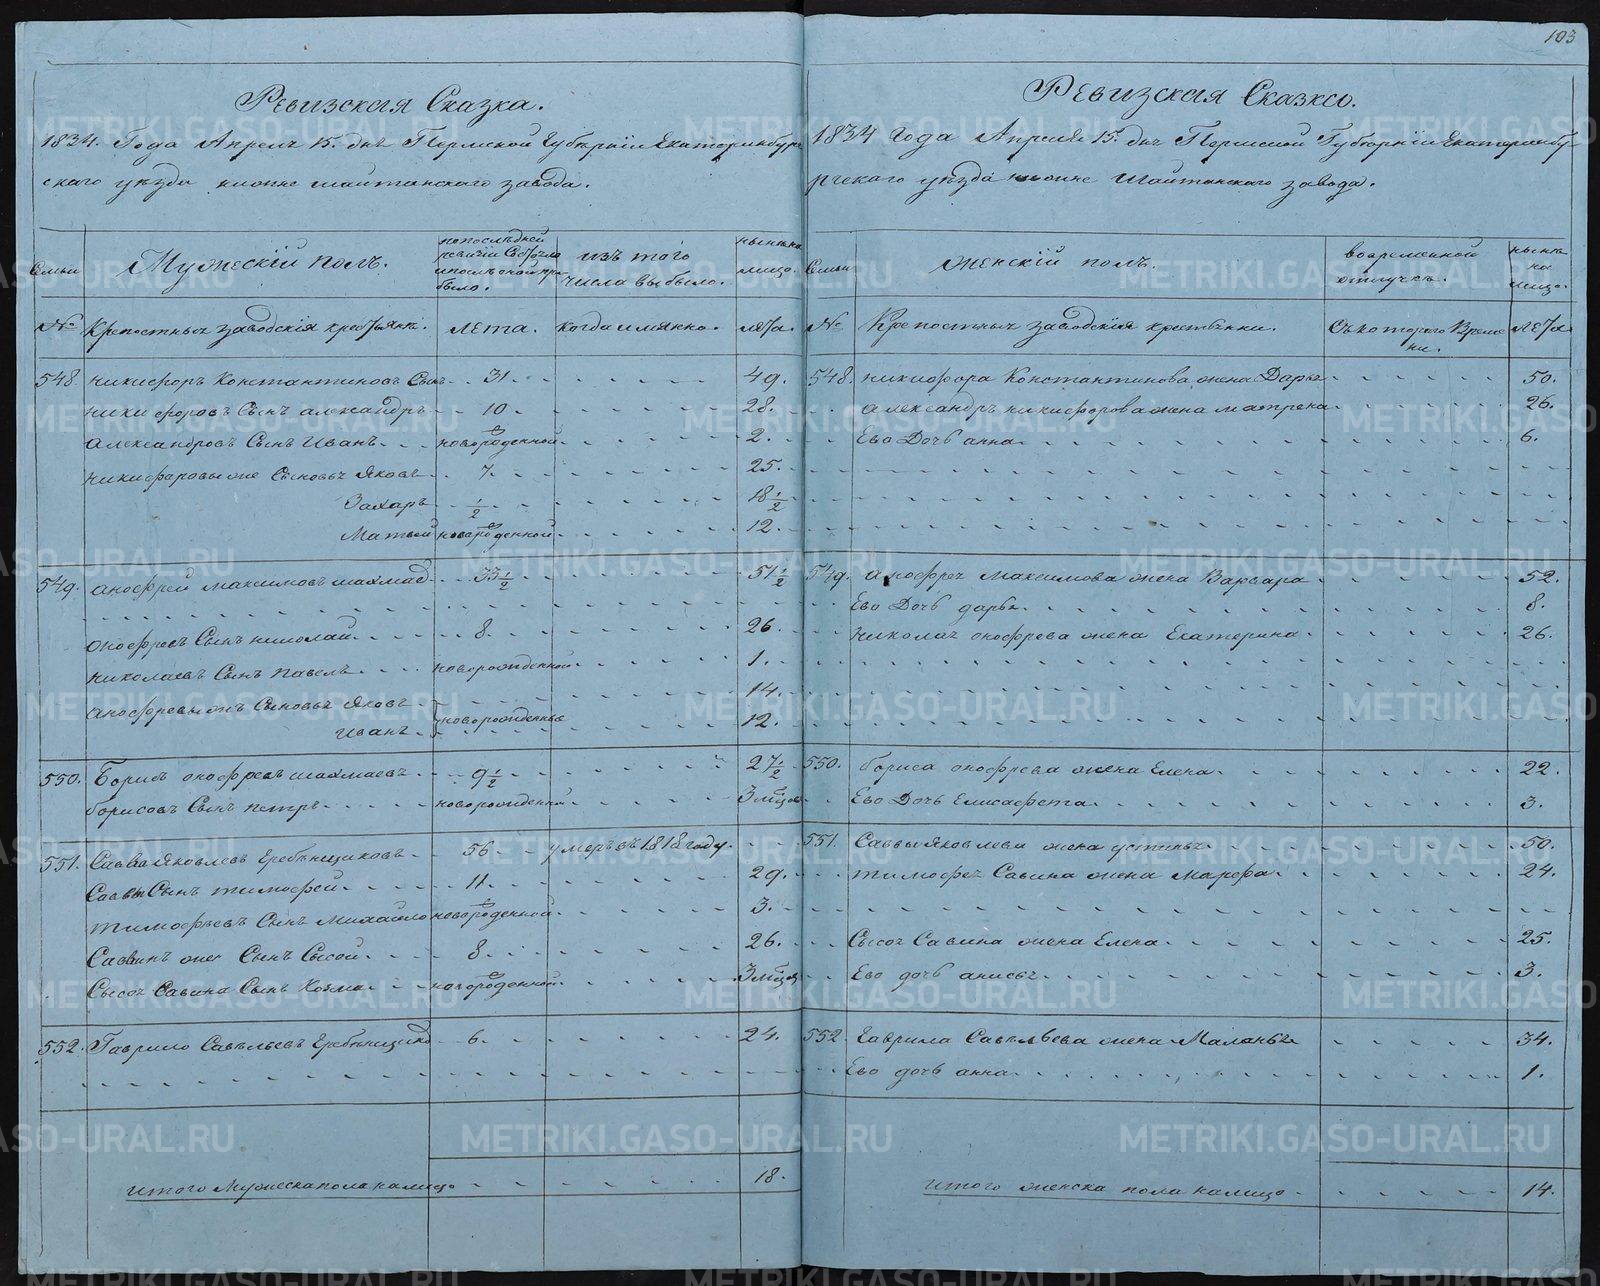 103
Ревизская Сказка.
1834. Года Апреля 15. дня Пермской Губернiи Екатеринбург
скаго уезда шайтанскаго завода.
Семьи
Мужескiй полъ.
попоследней ревизiи Состояло ипосле оной прибыло.
изъ того числа выбыло.
ныне налицо.
№
Крепостныя заводскiя крестьяне.
лета.
когда имянно.
лета.
548. никифоръ Константиновъ Сынъ 31. 49.
никифоровъ Сынъ александръ 10. 28.
александровъ Сынъ Иванъ новорожденной 2.
никифоровы же Сыновья Яковъ 7. 25.
Захаръ 1/2 18 1/2
Матвей новорожденной 12.
549. анофрей максимовъ шахма 33 1/2 51 1/2
онофреевъ Сынъ николай 8. 26.
николаевъ Сынъ павелъ новорожденной 1.
анофреевы жъ Сыновья Яковъ 14.
Иванъ новорожденные 12.
550. Борисъ онофреевъ шахмаевъ 9 1/2 27 1/2
борисовъ Сынъ петръ новорожденной 3 мцов
551. Савва Яковлевъ Еребенщиковъ 56. умеръ въ 1818 году.
Саввы Сынъ тимофей 11. 29.
тимофеевъ Сынъ Михайло новорожденной 3.
Саввинъ же Сынъ Сысой 8. 26.
Сысоя Савина Сынъ Козма новорожденной 3 мцов
552. Гаврило Савельевъ Еребенщико 6. 24.
итого Мужеска пола налицо 18.
Ревизская Сказка.
1834 года Апреля 15. дня Пермской Губернiи Екатеринбу
ргскаго уезда Шайтанскаго завода.
Семьи
женскiй полъ.
вовременной отлучке.
ныне на лицо.
№
Крепостныя заводскiя крестьянки.
Съкотораго Времени.
лета
548. никифора Константинова жена Дарья 50.
александръ никифорова жена матрена 26.
Ево Дочь анна 6.
549. анофрея Максимова жена Варвара 52.
Ево Дочь дарья 8.
николая онофрева жена Екатерина 26.
550. бориса онофрева жена Елена 22.
Ево Дочь Елисафета 3.
551. Саввы Яковлева жена устинья 50.
тимофея Савина жена Марфа 24.
Сысоя Савина жена Елена 25.
Ево дочь анисья 3.
552. Гаврила Савельева жена Маланья 34.
Ево дочь анна 1.
итого женска пола налицо 14.
METRIKI.GASO-URAL.RU